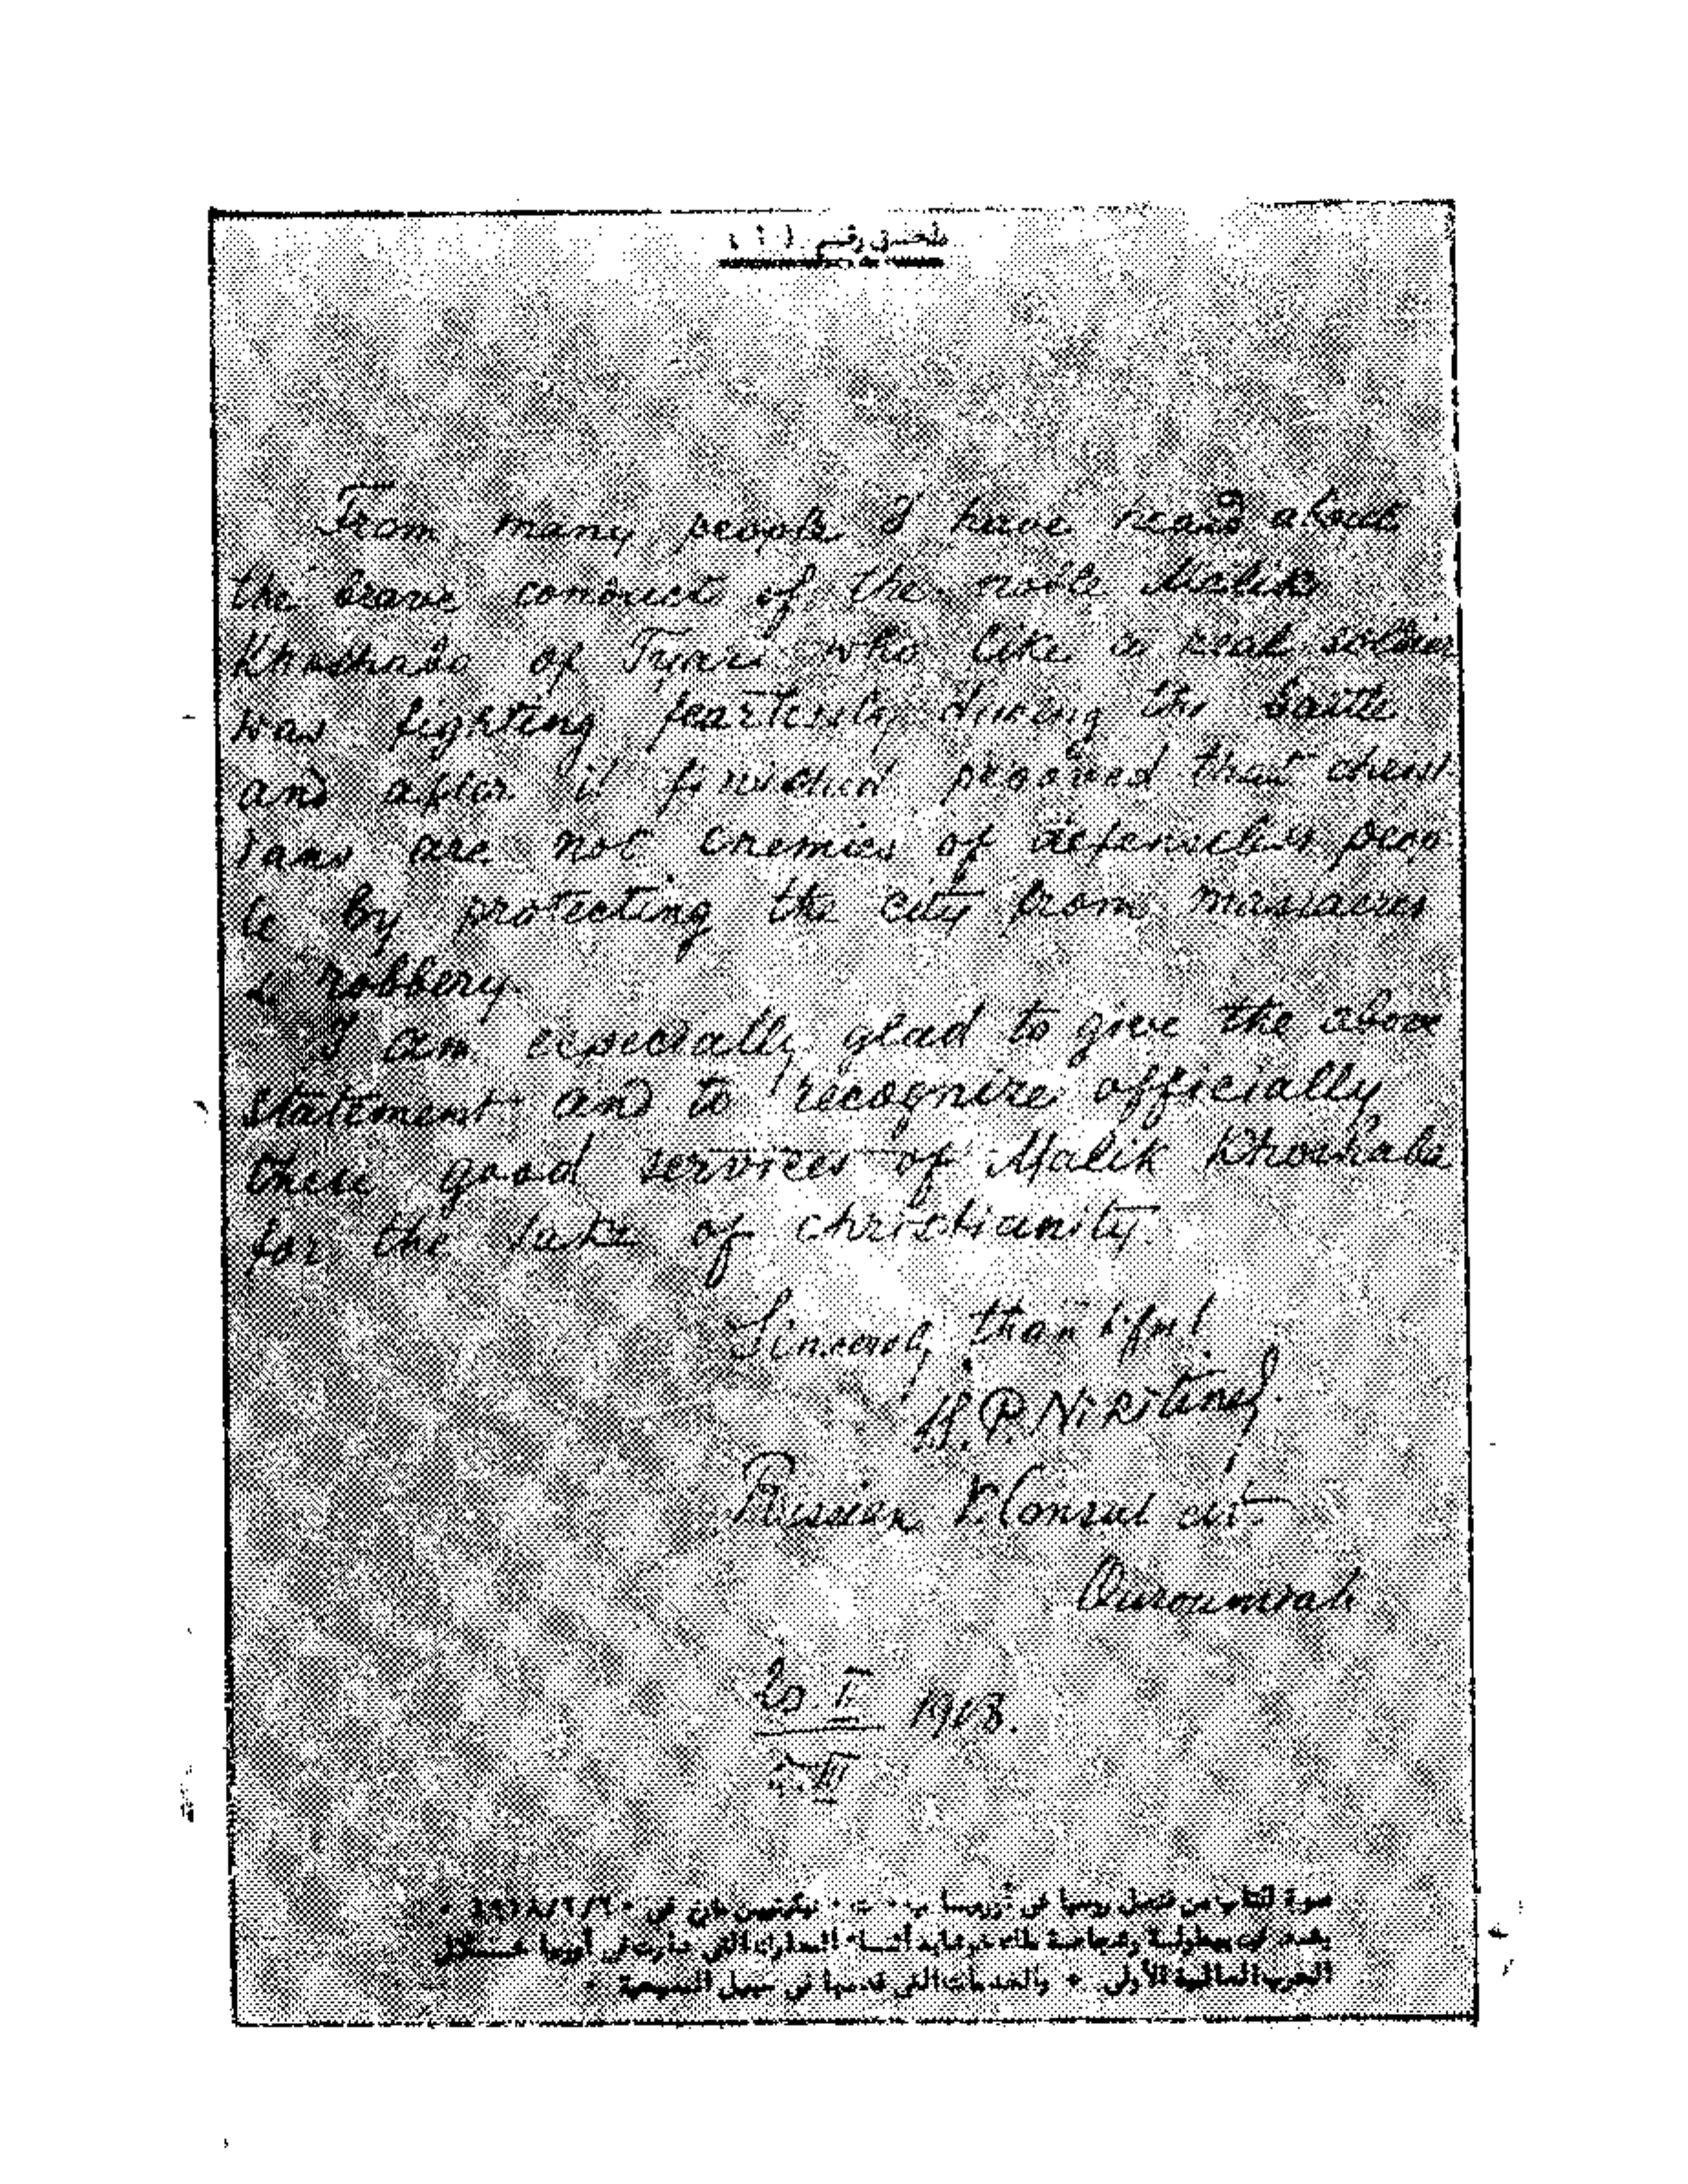 ملحق رقم (١)
From many people I have heard about
the brave conduct of the noble Malik
Khoshaba of Tyari who like a real soldier
was fighting fearlessly during the battle
and after it finished prooved that christ-
ians are not enemies of defenseless peop-
le by protecting the city from massacres
& robbery.
I am especially glad to give the above
statement and to recognize officially
these good services of Malik Khoshaba
for the sake of christianity.
Sincerely thankful
P. Nikitine
Russian V. Consul at
Ouroumiah
20.II 1918.
5.III
صورة لكتاب من قنصل روسيا في نيكيتين في
الحرب العالمية الأولى • والخدمات التي قدمها في سبيل المسيحية •